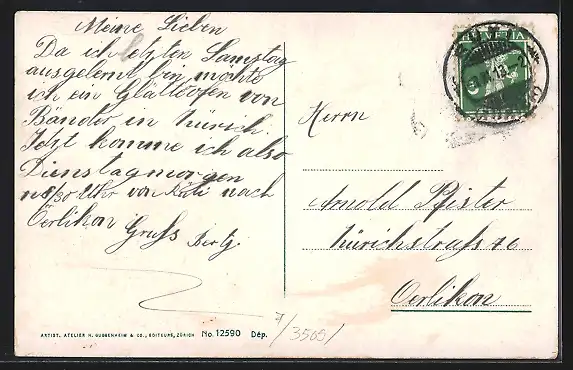 Meine Lieben
Da ich letzten Samstag
ausgelernt bin möchte
ich ein Glättofen von
Bänder in Zürich.
Jetzt komme ich also
Dienstagmorgen
Uhr von nach
Oerlikon
Gruss Berty.
HELVETIA
Herrn
Arnold Pfister
Zürichstrasse 76
Oerlikon
ARTIST. ATELIER H. GUGGENHEIM & CO., EDITEURS, ZÜRICH No. 12590 Dép.
7/3505/